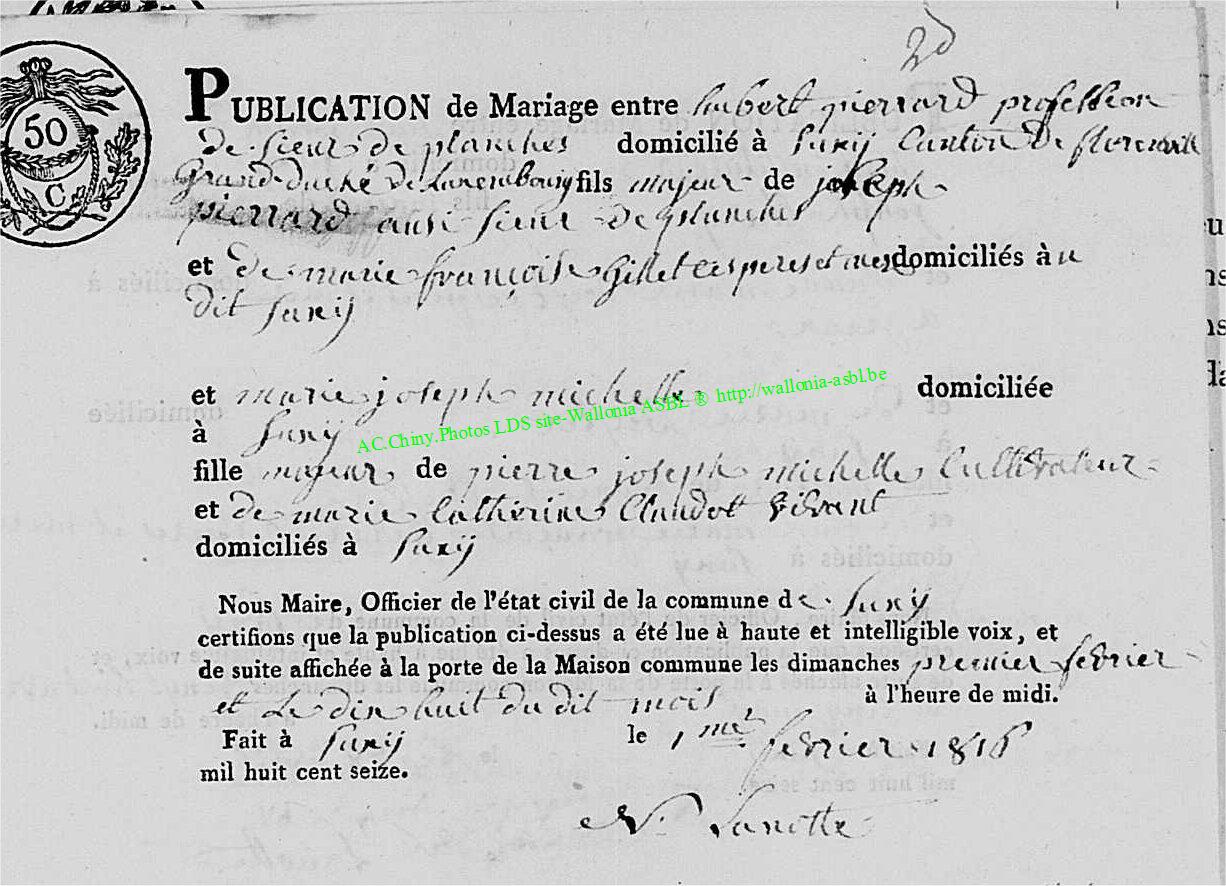 2d
50
C
PUBLICATION de Mariage entre hubert pierrard profession
de sieur de planches domicilié à Suxÿ Canton de florenville
Grand-duché de Luxembourg fils majeur de joseph
pierrard ausi sieur de planches
et de marie françoise Gillet ces peres et meres domiciliés à u
dit Suxÿ
et marie joseph michelle domiciliée
à Suxÿ
AC.Chiny.Photos LDS site-Wallonia ASBL ® http://wallonia-asbl.be
fille majeur de pierre joseph michelle Cultivateur
et de marie Catherine Claudot vivant
domiciliés à Suxÿ
Nous Maire, Officier de l'état civil de la commune de Suxÿ
certifions que la publication ci-dessus a été lue à haute et intelligible voix, et
de suite affichée à la porte de la Maison commune les dimanches premier fevrier
et le dix huit du dit mois à l'heure de midi.
Fait à Suxÿ le 1me fevrier 1816
mil huit cent seize.
N. Lanotte